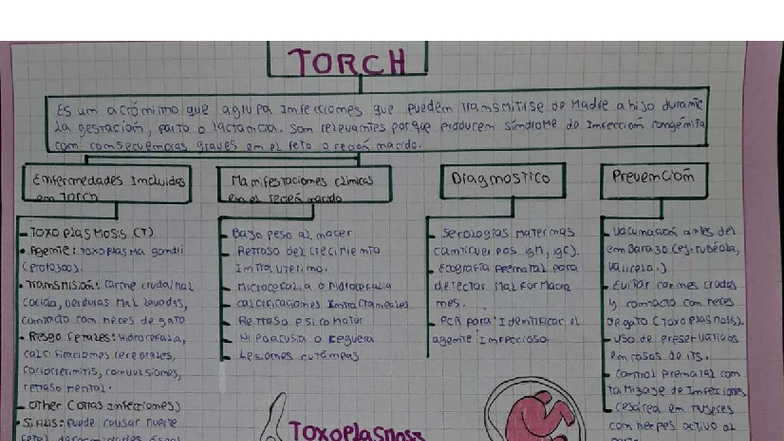 TORCH
Es un acrónimo que agrupa infecciones que pueden transmitirse de madre a hijo durante
la gestación, parto o lactancia. Son relevantes porque producen síndrome de infección congénita
con consecuencias graves en el feto o recién nacido.
Enfermedades Incluidas
en Torch
- TOXOPLASMOSIS (T)
• Agente: Toxoplasma gondii
(protozoo).
• Transmisión: carne cruda/mal
cocida, verduras mal lavadas,
contacto con heces de gato
• Riesgo fetales: hidrocefalia,
calcificaciones cerebrales,
coriorretinitis, convulsiones,
retraso mental.
- Other (Otras infecciones)
• Sífilis: Puede causar muerte
Manifestaciones clínicas
en el recién nacido
- Bajo peso al nacer
- Retraso del crecimiento
intrauterino.
- Microcefalia o hidrocefalia
- calcificaciones intracraneales
- Retraso psicomotor
- Hipoacusia o ceguera
- Lesiones cutáneas
Diagnostico
- Serologías maternas
(anticuerpos igM, igG).
- Ecografía prenatal para
detectar malformacio
nes.
- PCR para identificar el
agente infeccioso.
Prevención
- vacunación antes del
embarazo (ej. rubéola,
varicela.)
- Evitar carnes crudas
y contacto con heces
de gato (toxoplasmosis).
- Uso de preservativos
en casos de its.
- control prenatal con
tamizaje de infecciones
- cesárea en mujeres
con herpes activo al
Toxoplasmosis